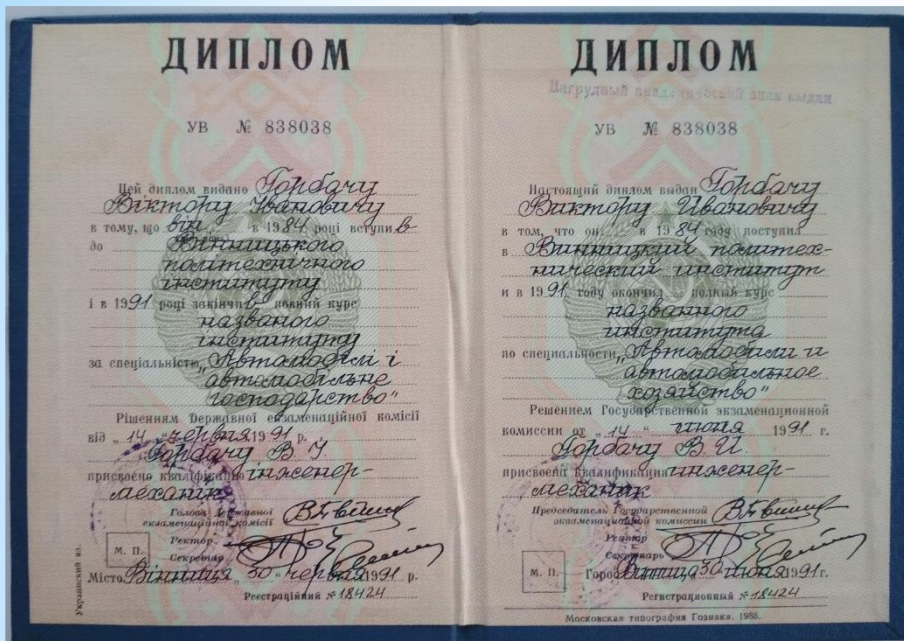 ДИПЛОМ
УВ № 838038
Цей диплом видано Горбачу
Віктору Івановичу
в тому, що він в 1984 році вступив
до Вінницького
політехнічного
інституту
і в 1991 році закінчив повний курс
названого
інституту
за спеціальністю „Автомобілі і
автомобільне
господарство"
Рішенням Державної екзаменаційної комісії
від „ 14 " червня 1991 р.
Горбачу В. І.
присвоєно кваліфікацію інженер-
механік
Голова Державної
екзаменаційної комісії
Ректор
Секретар
М. П.
Місто Вінниця „ 30 " червня 1991 р.
Реєстраційний № 18424
Украинский яз.
ДИПЛОМ
Нагрудный академический знак выдан
УВ № 838038
Настоящий диплом выдан Горбачу
Виктору Ивановичу
в том, что он в 1984 году поступил
в Винницкий политех-
нический институт
и в 1991 году окончил полный курс
названного
института
по специальности „Автомобили и
автомобильное
хозяйство"
Решением Государственной экзаменационной
комиссии от „ 14 " июня 1991 г.
Горбачу В. И.
присвоена квалификация инженер-
механик
Председатель Государственной
экзаменационной комиссии
Ректор
Секретарь
М. П.
Город Винница 30 июня 1991 г.
Регистрационный № 18424
Московская типография Гознака. 1988.